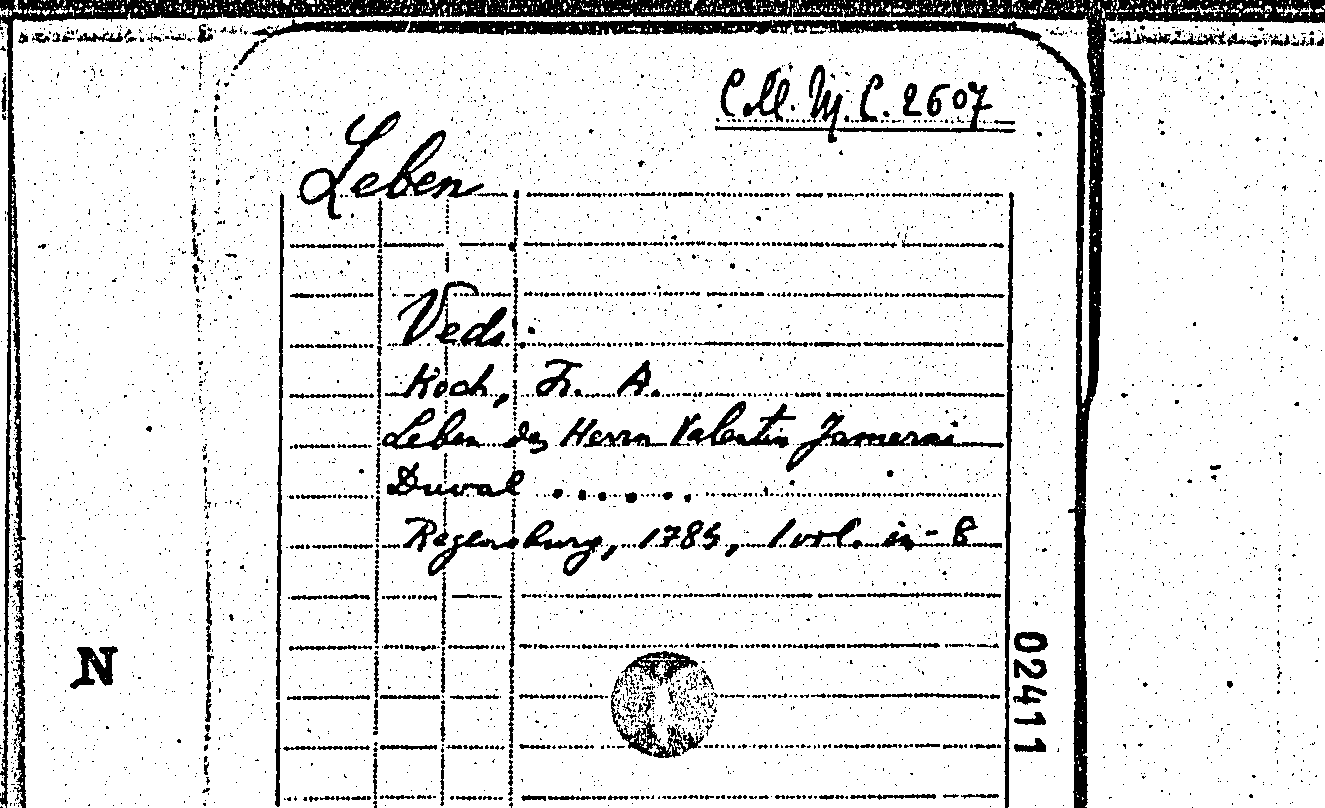 Coll. M. C. 2607
Leben
Veds:
Koch, Fr. A.
Leben des Herrn Valentin Jamerai
Duval ......
Regensburg, 1785, 1 vol. in-8
N
02411